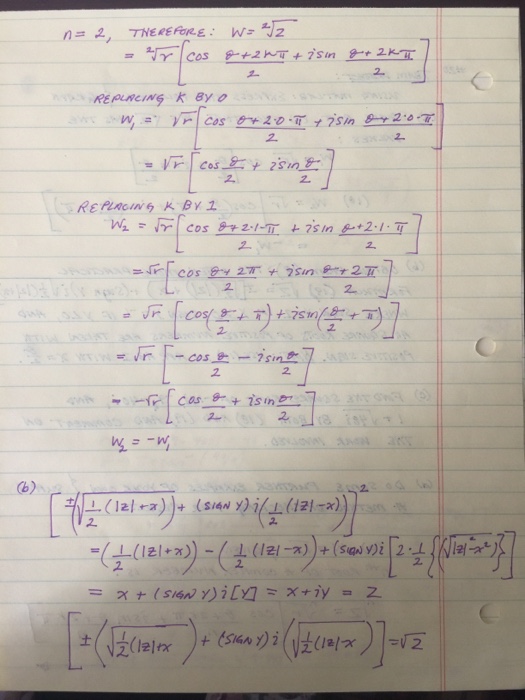 n = 2, THEREFORE: W = ²√z
= ²√r [cos (θ+2kπ)/2 + i sin (θ+2kπ)/2]
REPLACING K BY 0
W₁ = √r [cos (θ+2·0·π)/2 + i sin (θ+2·0·π)/2]
= √r [cos θ/2 + i sin θ/2]
REPLACING K BY 1
W₂ = √r [cos (θ+2·1·π)/2 + i sin (θ+2·1·π)/2]
= √r [cos (θ+2π)/2 + i sin (θ+2π)/2]
= √r [cos(θ/2 + π) + i sin(θ/2 + π)]
= √r [-cos θ/2 - i sin θ/2]
= -√r [cos θ/2 + i sin θ/2]
W₂ = -W₁
(b)
[±(√(1/2 (|z|+x)) + (SIGN Y) i (1/2 (|z|-x))]²
= (1/2 (|z|+x)) - (1/2 (|z|-x)) + (SIGN Y) i [2·1/2 {(√|z|²-x²)}]
= x + (SIGN Y) i [Y] = x+iY = z
[±(√(1/2 (|z|+x)) + (SIGN Y) i (√(1/2 (|z|-x))] = √z